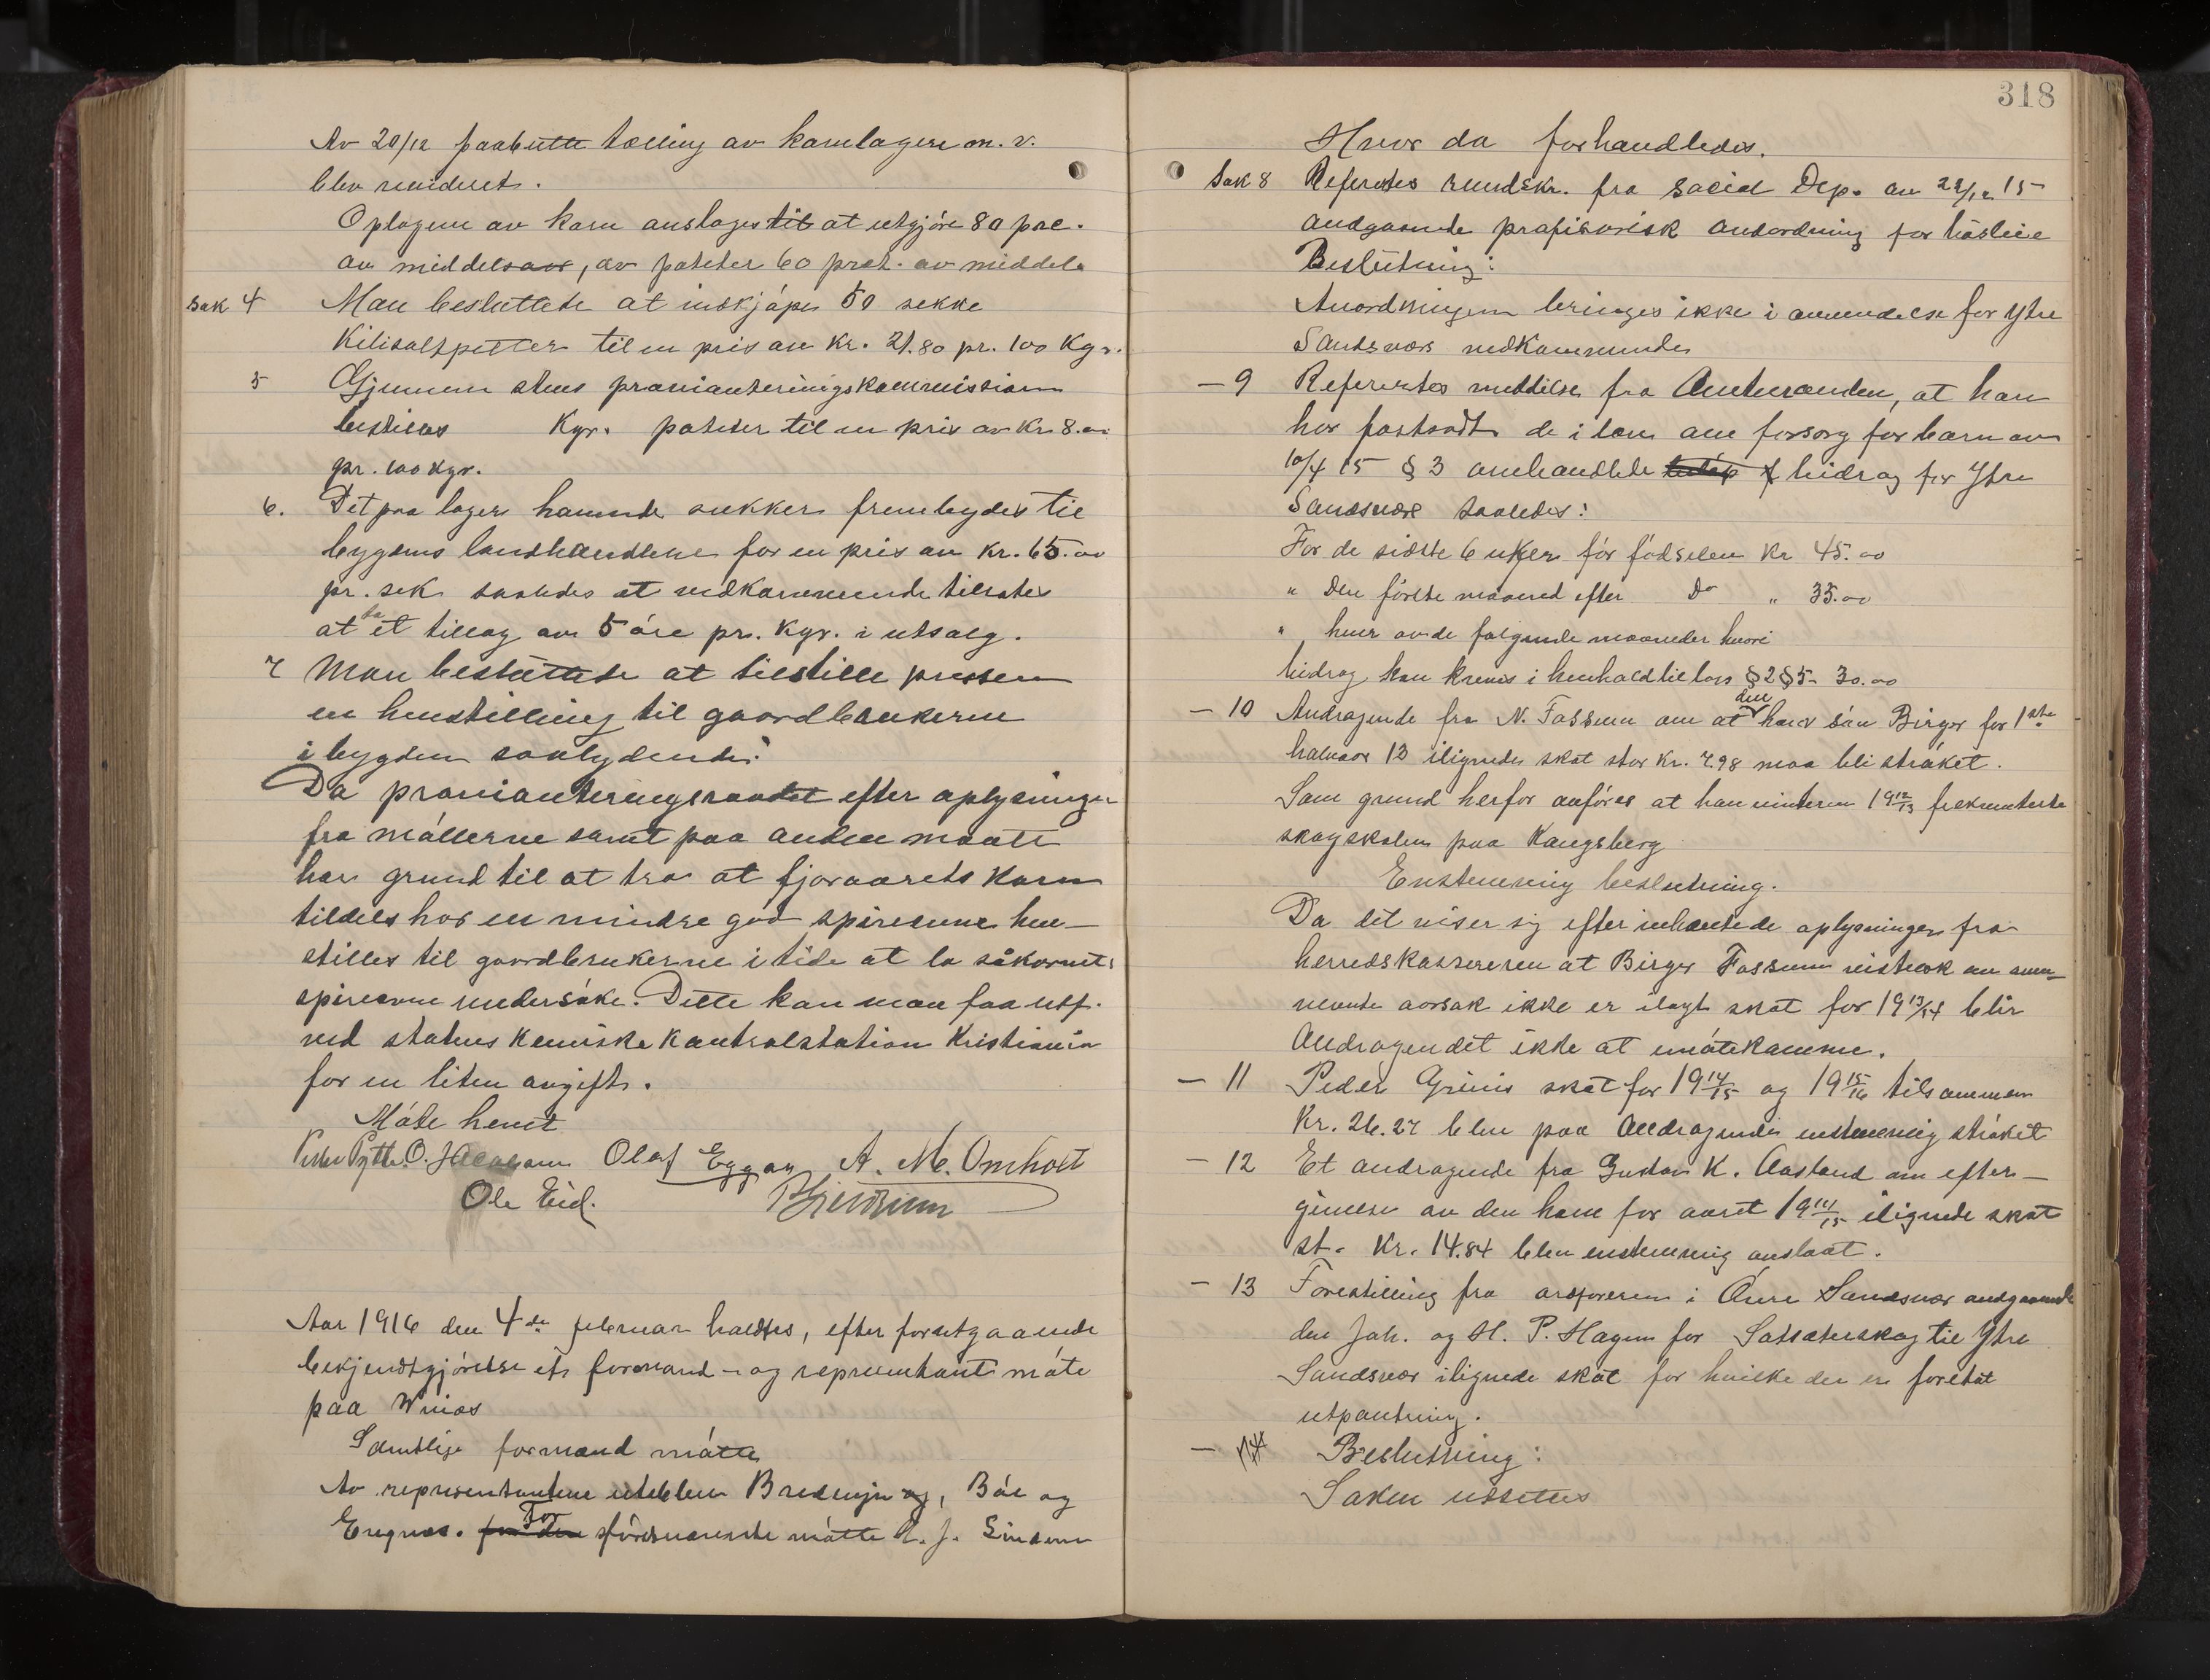 Av 20/12 paabutte tælling av kornlagere m. v.
blev revideret.
Oplagene av korn anslages til at utgjöre 80 prc.
av middelsaar, av poteter 60 prct. av middels
Sak 4 Man besluttede at indkjöpe 50 sekke
Kilisaltpetter til en pris av Kr. 21.80 pr. 100 Kgr.
5 Gjennem stens provianteringskommission
bestilles Kgr. poteter til en pris av Kr 8.00
pr. 100 kgr.
6. Det paa lager havende sukker frembydes til
bygdens landhandlere for en pris av Kr. 65.00
pr. sek saaledes at vedkommende tilsates
at ta et tillæg av 5 öre pr. Kgr. i utsalg.
7 Man besluttede at tilstille pressen
en henstilling til gaardbrukerne
i bygden saalydende:
Da provianteringsraadet efter oplysninger
fra möllerne samt paa anden maate
har grund til at tro at fjoraarets korn
tildels har en mindre god spireevne hen-
stilles til gaardbrukerne i tide at la såkornets
spireevne undersöke. Dette kan man faa utf.
ved statens Kemiske Kontrolstation Kristiania
for en liten avgift.
Möte hevet
Peder Pytte. O. Jacobsen Olaf Eggen A. M. Omholt
Ole Eid.
Aar 1916 den 4de februar holdtes, efter forutgaaende
bekjendtgjörelse et formand- og representant möte
paa Winæs
Samtlige formænd mötte
Av representantene uteblev Bredengen og, Böe og
Engnæs. for den For förstnævnte mötte A. J. Lindem
318
Hvor da forhandledes.
Sak 8 Refertes rundskr. fra Social Dep. av 22/12 15
andgaaende profisorisk andordning for husleie
Beslutning:
Anordningen bringes ikke i anvendelse for Ytre
Sandsvær vedkommende
— 9 Refertes meddelse fra Amtmanden, at han
har fastsadt de i lov om forsorg for barn av
10/4 15 § 3 omhandlede bidrag for Ytre
Sandsvær saaledes:
For de sidste 6 uker för födselen Kr 45.00
" Den förste maaned efter Do " 35.00
" hver av de fölgende maaneder hvori
bidrag kan kreves i henhold til lovs § 2 § 5 - 30.00
— 10 Andragende fra N. Fossum om at den hans sön Birger for 1ste
halvaar 13 ilignede skat stor Kr. 7.98 maa bli ströket.
Som grund herfor anföres at han vinteren 19 12/13 frekventerte
skogskolen paa Kongsberg
Enstemmig beslutning.
Da det viser sig efter indhentede oplysninger fra
herredskassereren at Birger Fossum av am-
mente aarsak ikke er ilagt skat for 19 13/14 blir
Andragendet ikke at imötekomme.
— 11 Peder Grinis skat for 19 14/15 og 19 15/16 tilsammen
Kr. 26.27 blev paa Andragende enstemmig ströket
— 12 Et andragende fra Gustav K. Aasland om efter-
givelse av den ham for aaret 19 14/15 ilignede skat
st. Kr. 14.84 blev enstemmig avslaat.
— 13 Forestilling fra ordföreren i Övre Sandsvær andgaaende
den Joh. og H. P. Hagen for Satsæterskog til Ytre
Sandsvær ilignede skat for hvilke der er foretat
utpantning.
— 14 Beslutning:
Saken utsættes